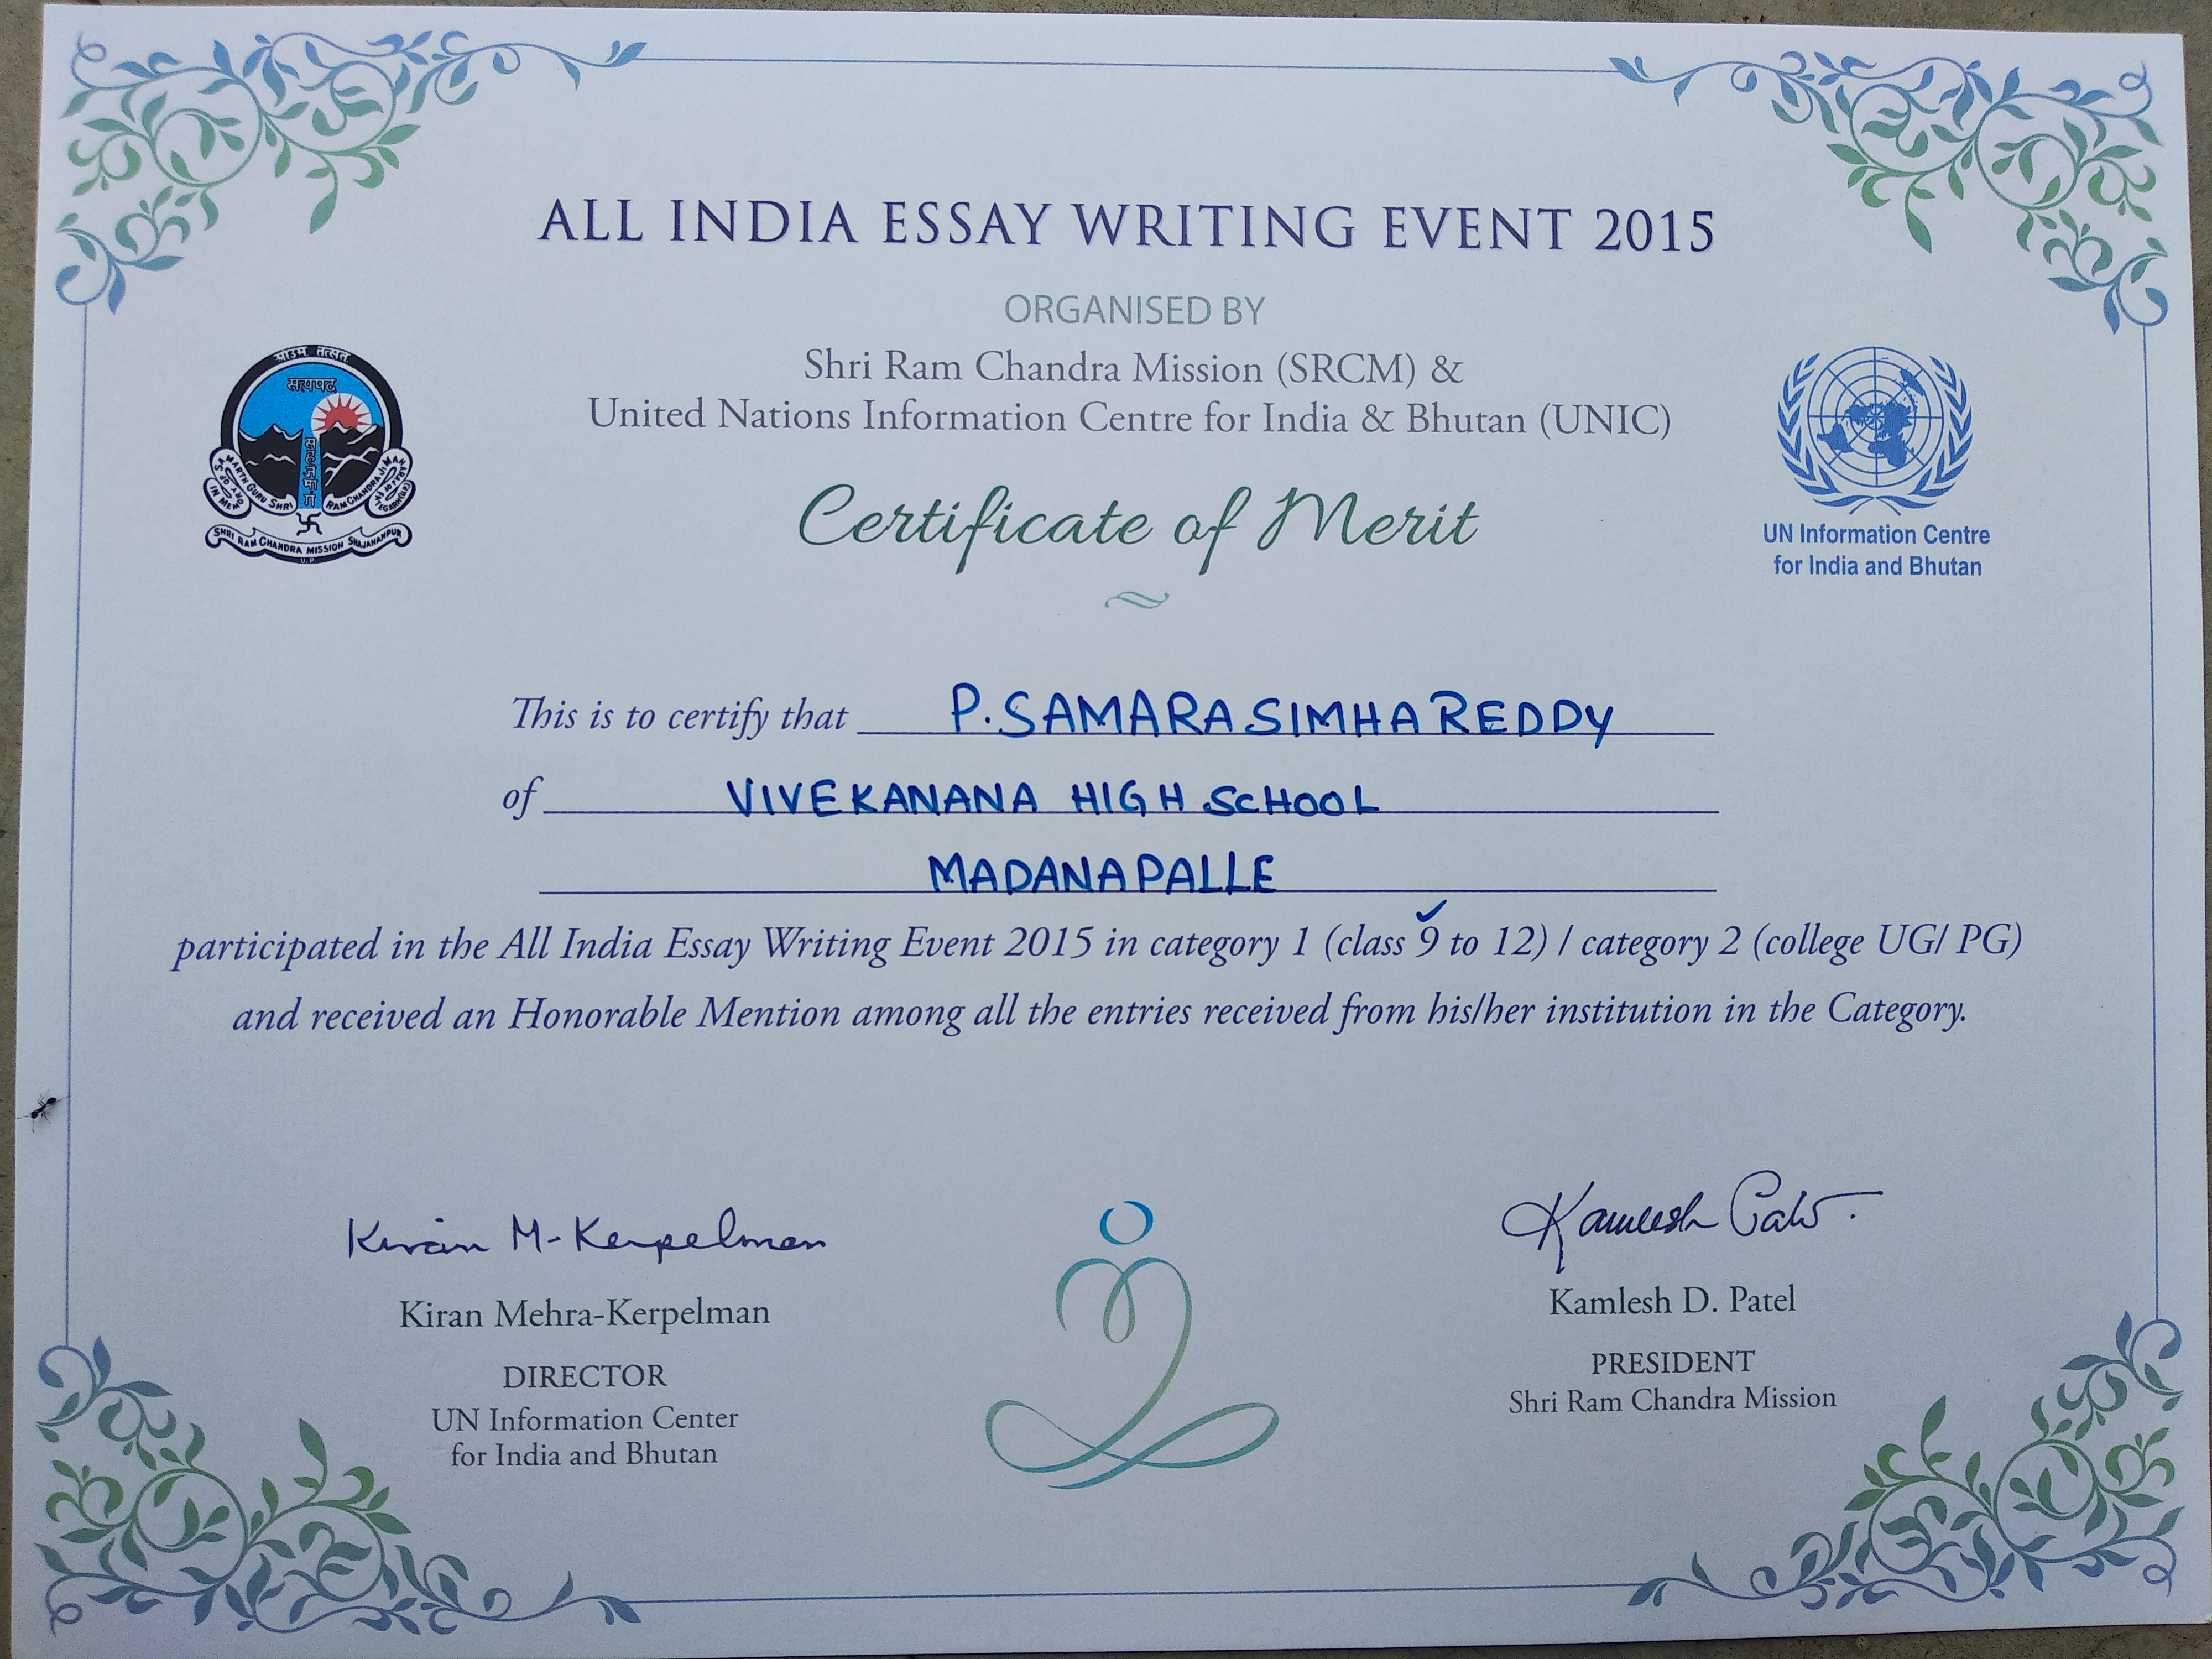 ALL INDIA ESSAY WRITING EVENT 2015
ORGANISED BY
Shri Ram Chandra Mission (SRCM) &
United Nations Information Centre for India & Bhutan (UNIC)
सत्यपद
SHRI RAM CHANDRA MISSION SHAJAHANPUR
U.P.
UN Information Centre
for India and Bhutan
Certificate of Merit
This is to certify that P. SAMARA SIMHA REDDY
of VIVEKANANA HIGH SCHOOL
MADANAPALLE
participated in the All India Essay Writing Event 2015 in category 1 (class 9 to 12) / category 2 (college UG/ PG)
and received an Honorable Mention among all the entries received from his/her institution in the Category.
Kiran M-Kerpelman
Kiran Mehra-Kerpelman
DIRECTOR
UN Information Center
for India and Bhutan
Kamlesh
Kamlesh D. Patel
PRESIDENT
Shri Ram Chandra Mission